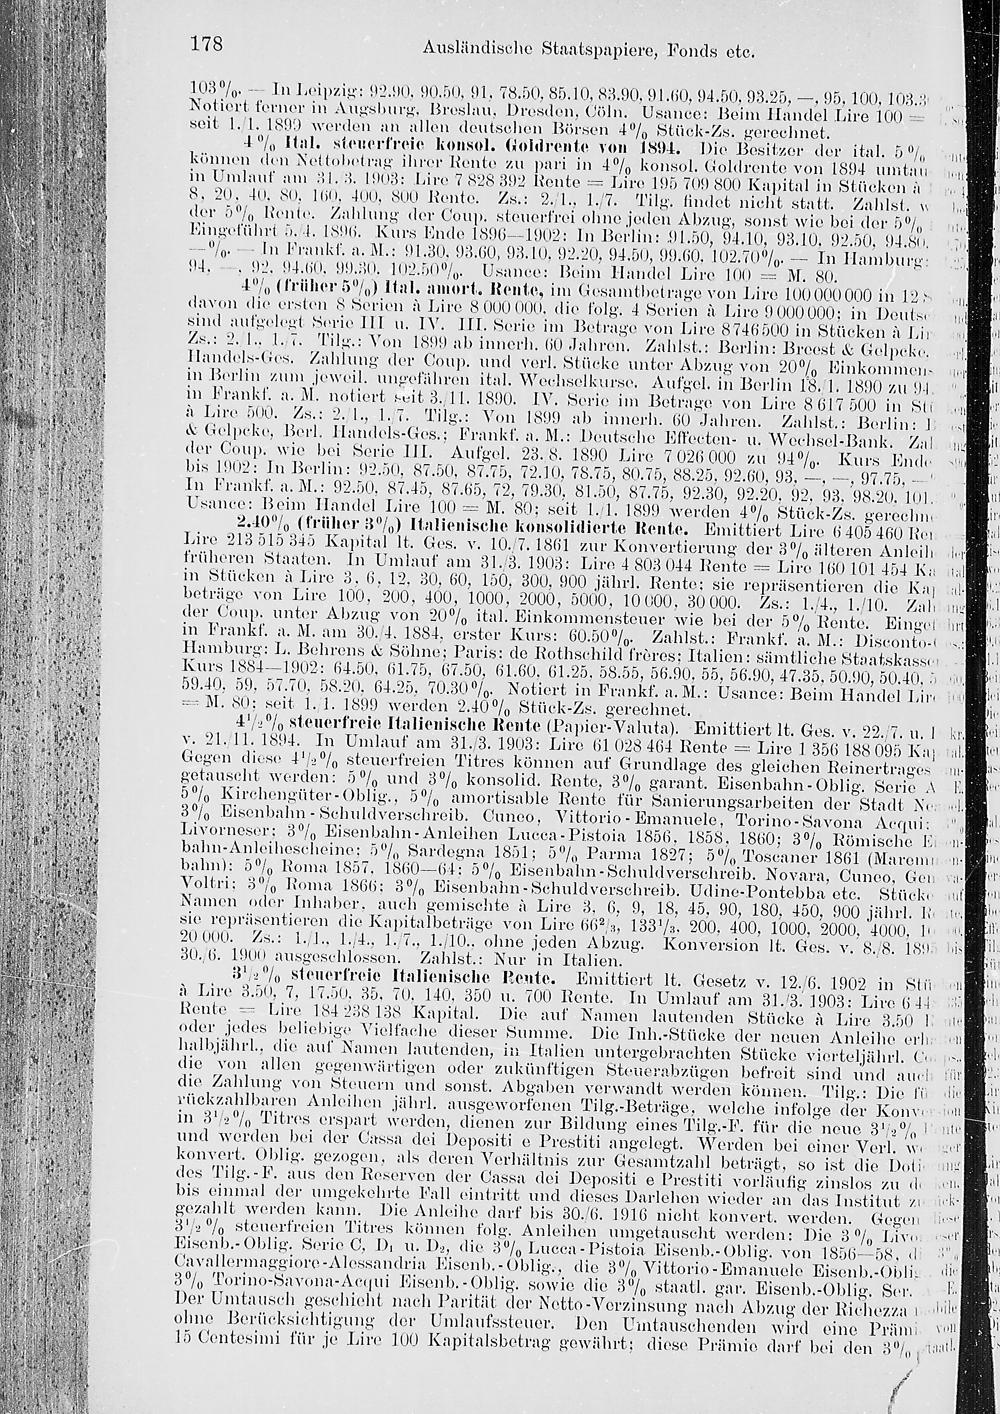 178
Ausländische Staatspapiere, Fonds etc.
103%. — In Leipzig: 92.90, 90.50, 91, 78.50, 85.10, 83.90, 91.60, 94.50, 93.25, —, 95, 100, 103.3
Notiert ferner in Augsburg, Breslau, Dresden, Cöln. Usance: Beim Handel Lire 100 =
seit 1./1. 1899 werden an allen deutschen Börsen 4% Stück-Zs. gerechnet.
4% Ital. steuerfreie konsol. Goldrente von 1894. Die Besitzer der ital. 5%
können den Nettobetrag ihrer Rente zu pari in 4% konsol. Goldrente von 1894 umtau
in Umlauf am 31./3. 1903: Lire 7 828 392 Rente = Lire 195 709 800 Kapital in Stücken à
8, 20, 40, 80, 160, 400, 800 Rente. Zs.: 2./1., 1./7. Tilg. findet nicht statt. Zahlst. w
der 5% Rente. Zahlung der Coup. steuerfrei ohne jeden Abzug, sonst wie bei der 5%
Eingeführt 5./4. 1896. Kurs Ende 1896—1902: In Berlin: 91.50, 94.10, 93.10, 92.50, 94.80,
—%. — In Frankf. a. M.: 91.30, 93.60, 93.10, 92.20, 94.50, 99.60, 102.70%. — In Hamburg:
94, —, 92, 94.60, 99.30, 102.50%. Usance: Beim Handel Lire 100 = M. 80.
4% (früher 5%) Ital. amort. Rente, im Gesamtbetrage von Lire 100 000 000 in 12 S
davon die ersten 8 Serien à Lire 8 000 000, die folg. 4 Serien à Lire 9 000 000; in Deuts
sind aufgelegt Serie III u. IV. III. Serie im Betrage von Lire 8 746 500 in Stücken à Li
Zs.: 2./1., 1./7. Tilg.: Von 1899 ab innerh. 60 Jahren. Zahlst.: Berlin: Breest & Gelpcke,
Handels-Ges. Zahlung der Coup. und verl. Stücke unter Abzug von 20% Einkommen-
in Berlin zum jeweil. ungefähren ital. Wechselkurse. Aufgel. in Berlin 18./1. 1890 zu 94
in Frankf. a. M. notiert seit 3./11. 1890. IV. Serie im Betrage von Lire 8 617 500 in Stü
à Lire 500. Zs.: 2./1., 1./7. Tilg.: Von 1899 ab innerh. 60 Jahren. Zahlst.: Berlin: B
& Gelpcke, Berl. Handels-Ges.; Frankf. a. M.: Deutsche Effecten- u. Wechsel-Bank. Zal
der Coup. wie bei Serie III. Aufgel. 23./8. 1890 Lire 7 026 000 zu 94%. Kurs Ende
bis 1902: In Berlin: 92.50, 87.50, 87.75, 72.10, 78.75, 80.75, 88.25, 92.60, 93, —, —, 97.75, —
In Frankf. a. M.: 92.50, 87.45, 87.65, 72, 79.30, 81.50, 87.75, 92.30, 92.20, 92, 93, 98.20, 101.
Usance: Beim Handel Lire 100 = M. 80; seit 1./1. 1899 werden 4% Stück-Zs. gerechne
2.40% (früher 3%) Italienische konsolidierte Rente. Emittiert Lire 6 405 460 Ren
Lire 213 515 345 Kapital lt. Ges. v. 10./7. 1861 zur Konvertierung der 3% älteren Anleih
früheren Staaten. In Umlauf am 31./3. 1903: Lire 4 803 044 Rente = Lire 160 101 454 Ka
in Stücken à Lire 3, 6, 12, 30, 60, 150, 300, 900 jährl. Rente; sie repräsentieren die Kap
beträge von Lire 100, 200, 400, 1000, 2000, 5000, 10 000, 30 000. Zs.: 1./4., 1./10. Zah
der Coup. unter Abzug von 20% ital. Einkommensteuer wie bei der 5% Rente. Eingef
in Frankf. a. M. am 30./4. 1884, erster Kurs: 60.50%. Zahlst.: Frankf. a. M.: Disconto-
Hamburg: L. Behrens & Söhne; Paris: de Rothschild frères; Italien: sämtliche Staatskasse
Kurs 1884—1902: 64.50, 61.75, 67.50, 61.60, 61.25, 58.55, 56.90, 55, 56.90, 47.35, 50.90, 50.40, 5
59.40, 59, 57.70, 58.20, 64.25, 70.30%. Notiert in Frankf. a. M.: Usance: Beim Handel Lire
= M. 80; seit 1./1. 1899 werden 2.40% Stück-Zs. gerechnet.
4½% steuerfreie Italienische Rente (Papier-Valuta). Emittiert lt. Ges. v. 22./7. u. 1
v. 21./11. 1894. In Umlauf am 31./3. 1903: Lire 61 028 464 Rente = Lire 1 356 188 095 Kap
Gegen diese 4½% steuerfreien Titres können auf Grundlage des gleichen Reinertrages
getauscht werden: 5% und 3% konsolid. Rente, 3% garant. Eisenbahn-Oblig. Serie A
5% Kirchengüter-Oblig., 5% amortisable Rente für Sanierungsarbeiten der Stadt Ne
3% Eisenbahn-Schuldverschreib. Cuneo, Vittorio-Emanuele, Torino-Savona Acqui;
Livorneser; 3% Eisenbahn-Anleihen Lucca-Pistoia 1856, 1858, 1860; 3% Römische Ei
bahn-Anleihescheine; 5% Sardegna 1851; 5% Parma 1827; 5% Toscaner 1861 (Maremm
bahn); 5% Roma 1857, 1860—64; 5% Eisenbahn-Schuldverschreib. Novara, Cuneo, Gen
Voltri; 3% Roma 1866; 3% Eisenbahn-Schuldverschreib. Udine-Pontebba etc. Stücke
Namen oder Inhaber, auch gemischte à Lire 3, 6, 9, 18, 45, 90, 180, 450, 900 jährl. R
sie repräsentieren die Kapitalbeträge von Lire 66⅔, 133⅓, 200, 400, 1000, 2000, 4000, 1
20 000. Zs.: 1./1., 1./4., 1./7., 1./10., ohne jeden Abzug. Konversion lt. Ges. v. 8./8. 1895
30./6. 1900 ausgeschlossen. Zahlst.: Nur in Italien.
3½% steuerfreie Italienische Rente. Emittiert lt. Gesetz v. 12./6. 1902 in Stü
à Lire 3.50, 7, 17.50, 35, 70, 140, 350 u. 700 Rente. In Umlauf am 31./3. 1903: Lire 6 44
Rente = Lire 184 238 138 Kapital. Die auf Namen lautenden Stücke à Lire 3.50 R
oder jedes beliebige Vielfache dieser Summe. Die Inh.-Stücke der neuen Anleihe erh
halbjährl., die auf Namen lautenden, in Italien untergebrachten Stücke vierteljährl. Co
die von allen gegenwärtigen oder zukünftigen Steuerabzügen befreit sind und auch
die Zahlung von Steuern und sonst. Abgaben verwandt werden können. Tilg.: Die fü
rückzahlbaren Anleihen jährl. ausgeworfenen Tilg.-Beträge, welche infolge der Konve
in 3½% Titres erspart werden, dienen zur Bildung eines Tilg.-F. für die neue 3½%
und werden bei der Cassa dei Depositi e Prestiti angelegt. Werden bei einer Verl. we
konvert. Oblig. gezogen, als deren Verhältnis zur Gesamtzahl beträgt, so ist die Doti
des Tilg.-F. aus den Reserven der Cassa dei Depositi e Prestiti vorläufig zinslos zu de
bis einmal der umgekehrte Fall eintritt und dieses Darlehen wieder an das Institut z
gezahlt werden kann. Die Anleihe darf bis 30./6. 1916 nicht konvert. werden. Gegen
3½% steuerfreien Titres können folg. Anleihen umgetauscht werden: Die 3% Livor
Eisenb.-Oblig. Serie C, D₁ u. D₂, die 3% Lucca-Pistoia Eisenb.-Oblig. von 1856—58, d
Cavallermaggiore-Alessandria Eisenb.-Oblig., die 3% Vittorio-Emanuele Eisenb.-Oblig
3% Torino-Savona-Acqui Eisenb.-Oblig. sowie die 3% staatl. gar. Eisenb.-Oblig. Ser.
Der Umtausch geschieht nach Parität der Netto-Verzinsung nach Abzug der Richezza
ohne Berücksichtigung der Umlaufssteuer. Den Umtauschenden wird eine Prämi
15 Centesimi für je Lire 100 Kapitalsbetrag gewährt; diese Prämie darf bei den 3%